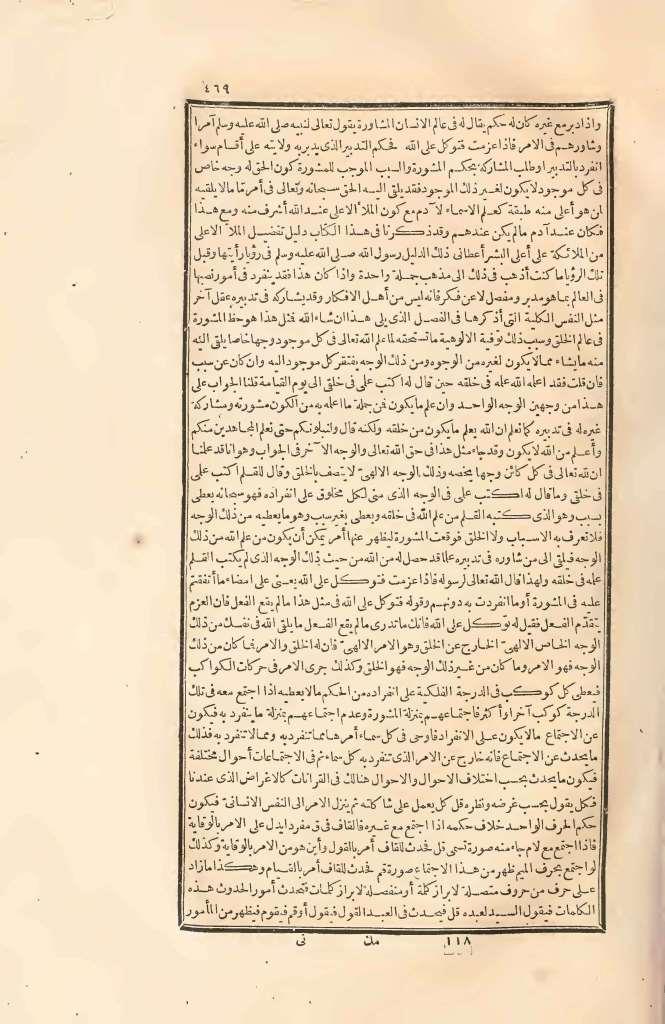 ٤٦٩
واذا دبر مع غيره كان له حكم يقال له فى عالم الانسان المشاورة يقول تعالى لنبيه صلى الله عليه وسلم آمرا
وشاورهم فى الامر فاذا عزمت فتوكل على الله فحكم التدبير الذى يدبر به ولايته على أقسام سواء
انفرد بالتدبير أو طلب المشاركة بحكم المشورة والسبب الموجب للمشورة كون الحق له وجه خاص
فى كل موجود لا يكون لغير ذلك الموجود فقد يلقى اليه الحق سبحانه وتعالى فى أمر تا ما لا يلقيه
لمن هو أعلى منه طبقة كعلم الاسماء لآدم مع كون الملأ الاعلى عند الله أشرف منه ومع هذا
فكان عند آدم ما لم يكن عندهم وقد ذكرنا فى هذا الكتاب دليل تفضيل الملأ الاعلى
من الملائكة على أعلى البشر أعطانى ذلك الدليل رسول الله صلى الله عليه وسلم فى رؤيا رأيتها وقبل
تلك الرؤيا ما كنت أذهب فى ذلك الى مذهب جملة واحدة واذا كان هذا فقد ينفرد فى أمور نصبها
فى العالم بما هو مدبر ومفصل لا عن فكر فانه ليس من أهل الافكار وقد يشاركه فى تدبيره عقل آخر
مثل النفس الكلية التى أذكرها فى الفصل الذى يلى هذا ان شاء الله فمثل هذا هو حظ المشورة
فى عالم الخلق وسبب ذلك توفية الالوهية ما تستحقه لما علم الله تعالى فى كل موجود وجها خاصا يلقى اليه
منه ما يشاء مما لا يكون لغيره من الوجوه ومن ذلك الوجه يفتقر كل موجود اليه وان كان عن سبب
فان قلت فقد اعلمه الله علمه فى خلقه حين قال له اكتب علمى فى خلقى الى يوم القيامة قلنا الجواب على
هذا من وجهين الوجه الواحد وان علم ما يكون فمن جملة ما اعلمه به من الكون مشورته ومشاركة
غيره له فى تدبيره كما نعلم ان الله يعلم ما يكون من خلقه ولكنه قال ولنبلونكم حتى نعلم المجاهدين منكم
وأعلم من الله لا يكون وقد جاء مثل هذا فى حق الله تعالى والوجه الآخر فى الجواب وهو انا قد علمنا
ان لله تعالى فى كل كائن وجها يخصه وذلك الوجه الالهى لا يتصف بالخلق وقال للقلم اكتب علمى
فى خلقى وما قال له اكتب علمى فى الوجه الذى منى لكل مخلوق على انفراده فهو سبحانه يعطى
بسبب وهو الذى كتبه القلم من علم الله فى خلقه ويعطى بغير سبب وهو ما يعطيه من ذلك الوجه
فلا تعرف به الاسباب ولا الخلق فوقعت المشورة ليظهر عنها أمر يمكن أن يكون من علم الله من ذلك
الوجه فيلقى الى من شاوره فى تدبيره علما قد حصل له من الله من حيث ذلك الوجه الذى لم يكتب القلم
علمه فى خلقه ولهذا قال الله تعالى لرسوله فاذا عزمت فتوكل على الله يعنى على امضاء ما أنفقتم
عليه فى المشورة أو ما انفردت به دونهم وقوله فتوكل على الله فى مثل هذا ما لم يقع الفعل فان العزم
يتقدم الفعل فقيل له توكل على الله فانك ما تدرى ما لم يقع الفعل ما يلقى الله فى نفسك من ذلك
الوجه الخاص الالهى الخارج عن الخلق وهو الامر الالهى فان له الخلق والامر فما كان من ذلك
الوجه فهو الامر وما كان من غير ذلك الوجه فهو الخلق وكذلك جرى الامر فى حركات الكواكب
فيعطى كل كوكب فى الدرجة الفلكية على انفراده من الحكم ما لا يعطيه اذا اجتمع معه فى تلك
الدرجة كوكب آخر أو أكثر فاجتماعهم بمنزلة المشورة وعدم اجتماعهم بمنزلة ما ينفرد به فيكون
عن الاجتماع ما لا يكون على الانفراد فأوحى فى كل سماء أمرها مما تنفرد به ومما لا تنفرد به فذلك
ما يحدث عن الاجتماع فانه خارج عن الامر الذى تنفرد به كل سماء ثم فى الاجتماعات أحوال مختلفة
فيكون ما يحدث بحسب اختلاف الاحوال والاحوال هنالك فى القرانات كالاغراض الذى عندنا
فكل يقول بحسب غرضه ونظره قل كل يعمل على شاكلته ثم ينزل الامر الى النفس الانسانى فيكون
حكم الحرف الواحد خلاف حكمه اذا اجتمع مع غيره فالقاف فى ق مفرد ايدل على الامر بالوقاية
فاذا اجتمع مع لام جاء منه صورة تسمى قل فحدث للقاف أمر بالقول وأين هو من الامر بالوقاية وكذلك
لو اجتمع بحرف الميم ظهر من هذا الاجتماع صورة قم فحدث للقاف أمر بالقيام وهكذا ما زاد
على حرف من حروف متصلة لابراز كلمة أو منفصلة لابراز كلمات فتحدث أمور لحدوث هذه
الكلمات فيقول السيد لعبده قل فيحدث فى العبد القول فيقول أو قم فيقوم فيظهر من المأمور
١١٨ مك نى